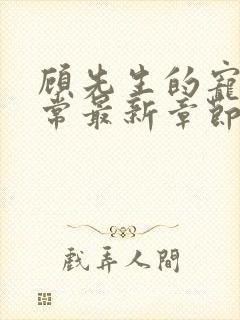 顾先生的寵
常最新章節
戲弄人間